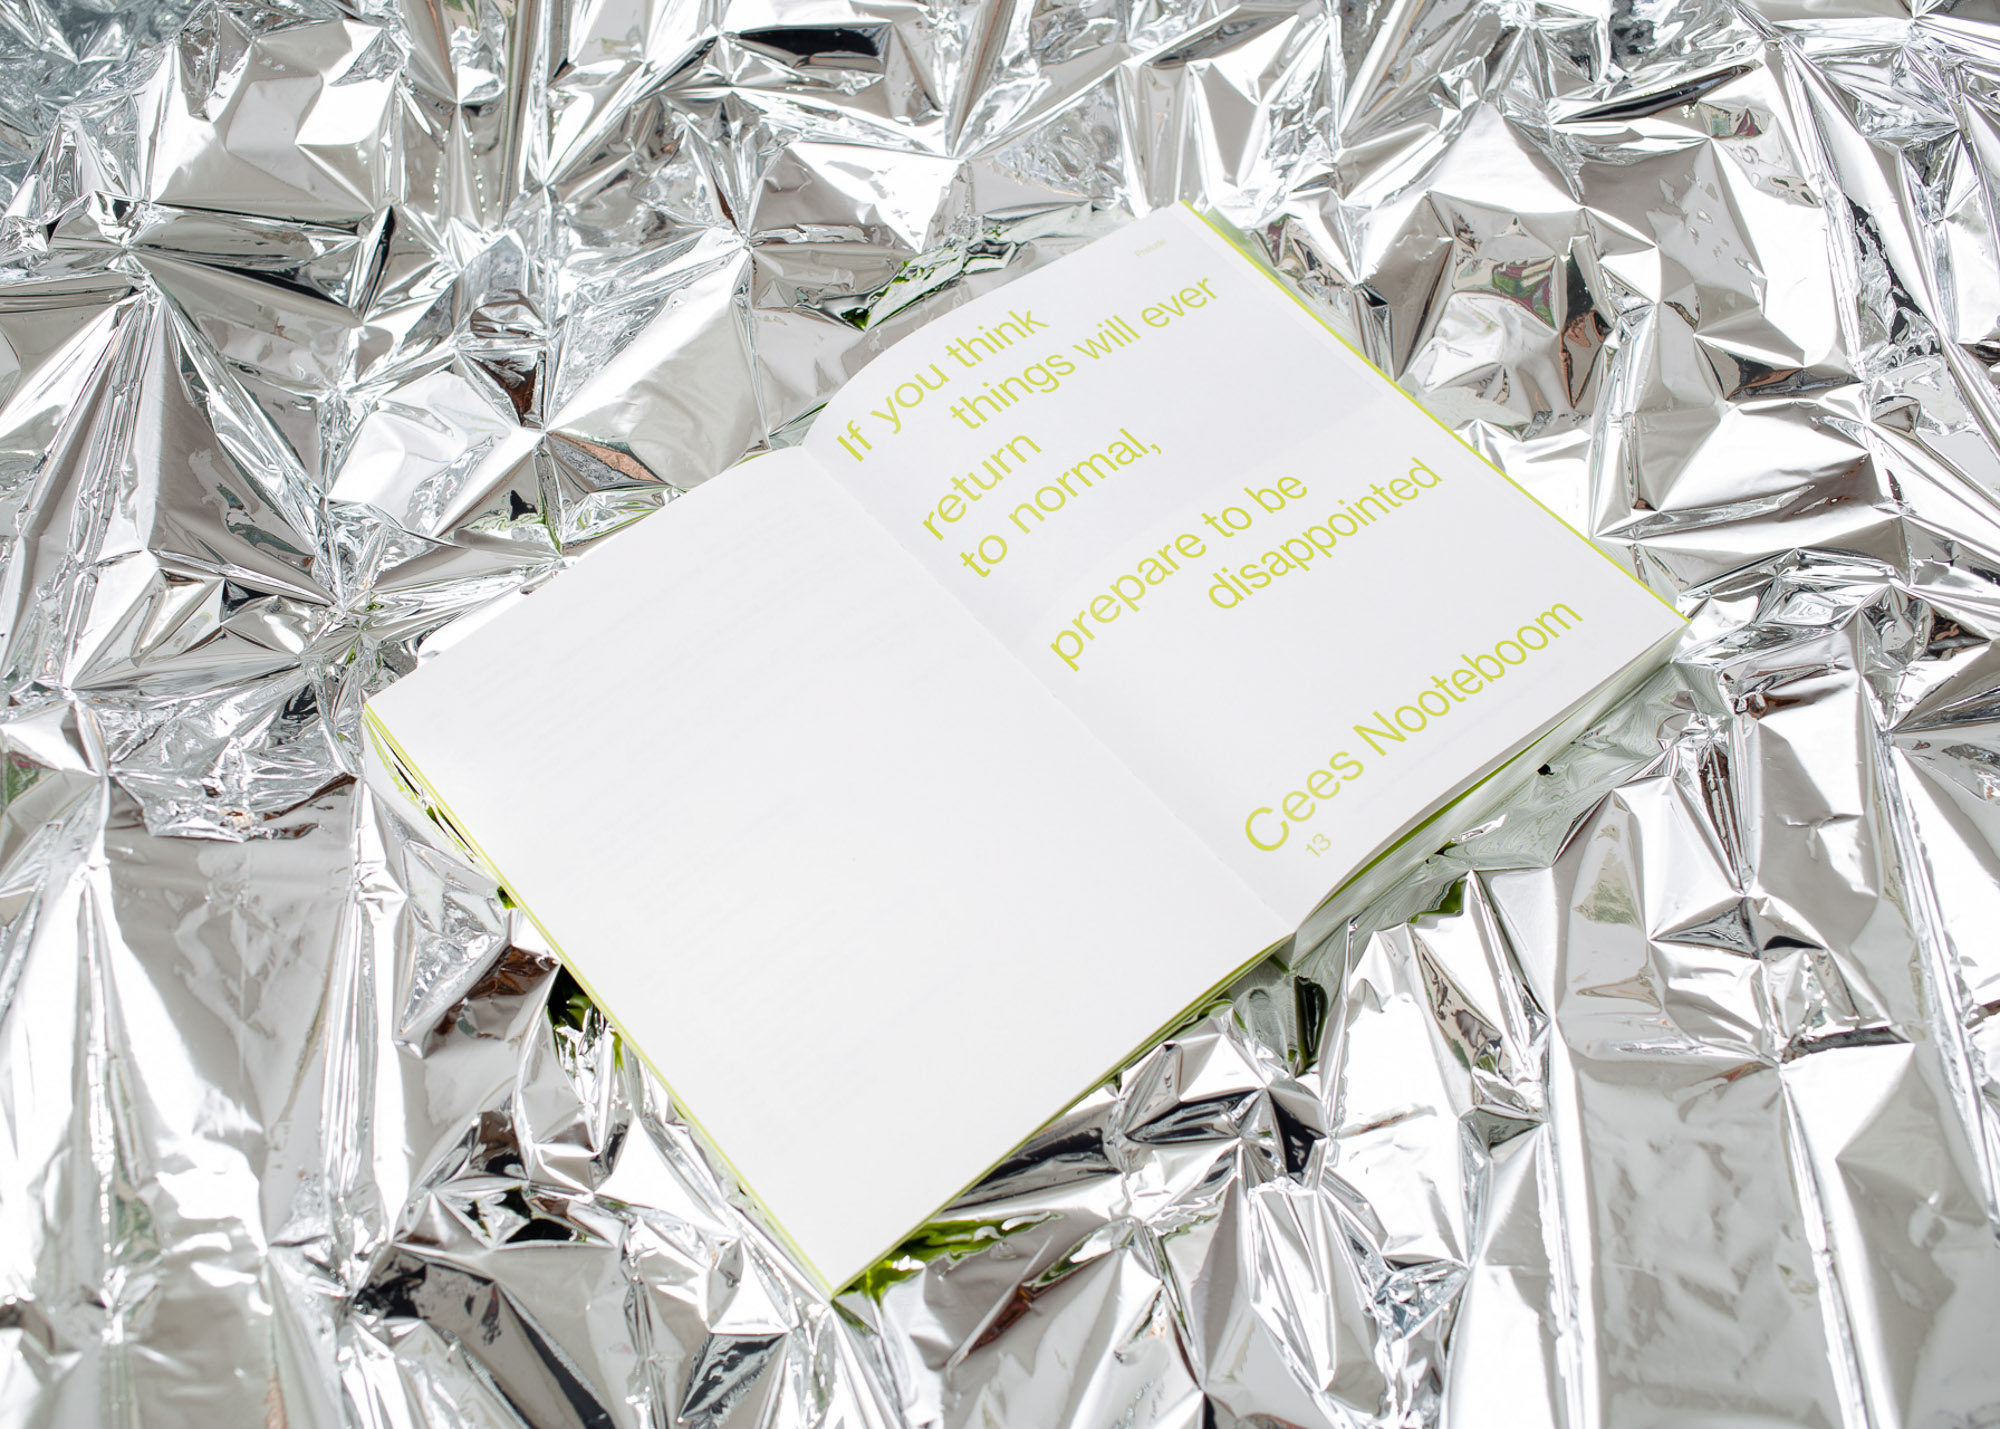 Prelude
If you think
things will ever
return
to normal,
prepare to be
disappointed
Cees Nooteboom
13